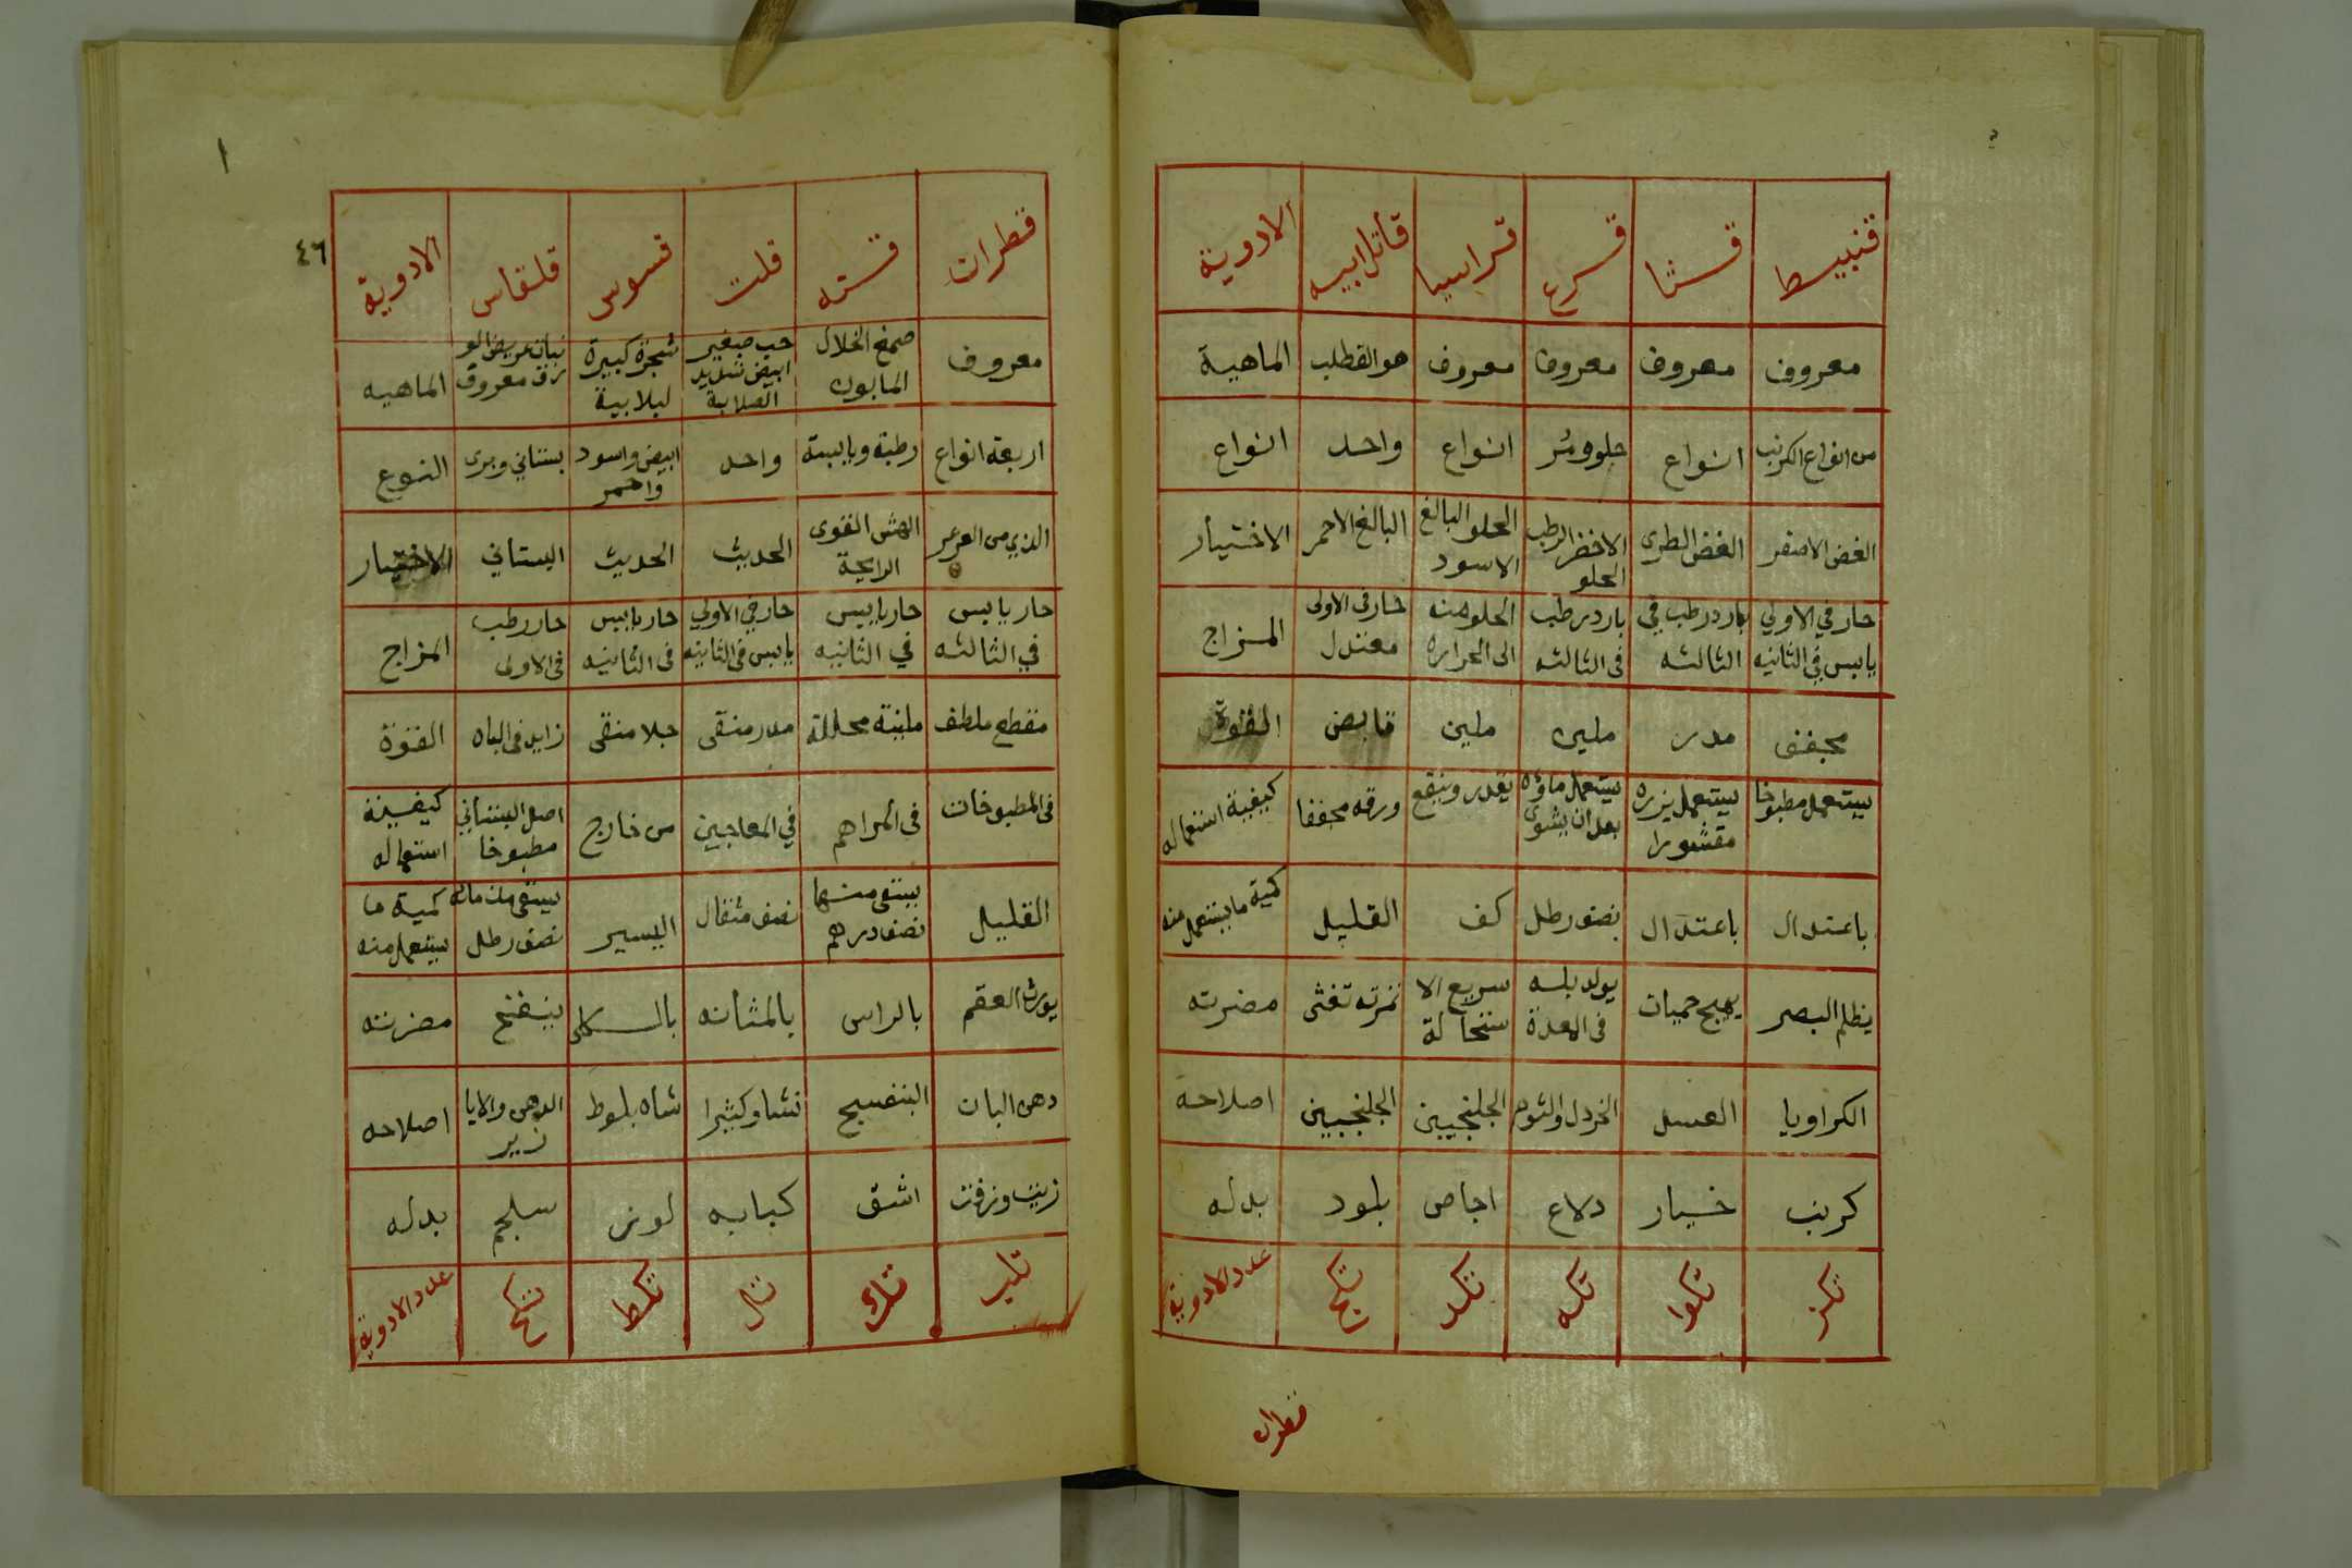 قنبيط قثا قرع قراسيا قاتل ابيه الادوية
معروف معروف معروف معروف هو القطلب الماهية
من انواع الكرنب انواع حلو ومر انواع واحد انواع
الغض الاصفر الغض الطرى الاخضر الرطب الحلو الحلو البالغ الاسود البالغ الاحمر الاختيار
حار في الاولي يابس في الثانيه بارد رطب في الثالثه بارد رطب في الثالثه الحلو منه الى الحراره حار فى الاولى معتدل المزاج
مجفف مدر ملين ملين قابض القوة
يستعمل مطبوخا يستعمل بزره مقشورا يستعمل ماؤه بعد ان يشوى ورقه مجففا كيفية استعماله
باعتدال باعتدال نصف رطل كف القليل كمية ما يستعمل منه
يظلم البصر يهيج حميات يولد بله فى المعدة سريع الا ستحالة ثمرته تغثى مضرته
الكراويا العسل الخردل والثوم الجلنجبين الجلنجبين اصلاحه
كرنب خيار دلاع اجاص بلود بدله
تكز تكوا تكه تكد تكج عدد الادوية
قطران
١
٤٦
قطران قنه قلت قسوس قلقاس الادوية
معروف صمغ الخلال المابون حب صغير ابيض شديد الصلابة شجرة كبيرة لبلابية نبات عريض الو رق معروف الماهيه
اربعة انواع رطبة ويابسة واحد ابيض واسود واحمر بستاني وبرى النوع
الذي من العرعر الهش القوى الرايحة الحديث الحديث البستاني الاختيار
حار يابس في الثالثه حار يابس في الثانيه حار في الاولي يابس فى الثانيه حار يابس فى الثانيه حار رطب فى الاولى المزاج
مقطع ملطف ملينة محللة مدر منقى جلا منقى زايد فى الباه القوة
فى المطبوخات فى المراهم في المعاجين من خارج اصل البستاني مطبوخا كيفية استعماله
القليل يسقى منها نصف درهم نصف مثقال اليسير يسقى من مائه نصف رطل كمية ما يستعمل منه
يورث العقم بالراس بالمثانه بالكلى ينفخ مضرته
دهن البان البنفسج نشا وكثيرا شاه بلوط الدهن والابا زير اصلاحه
زيت وزفت اشق كبابه لوز سلجم بدله
تلب تلا تل تكط تكح عدد الادوية